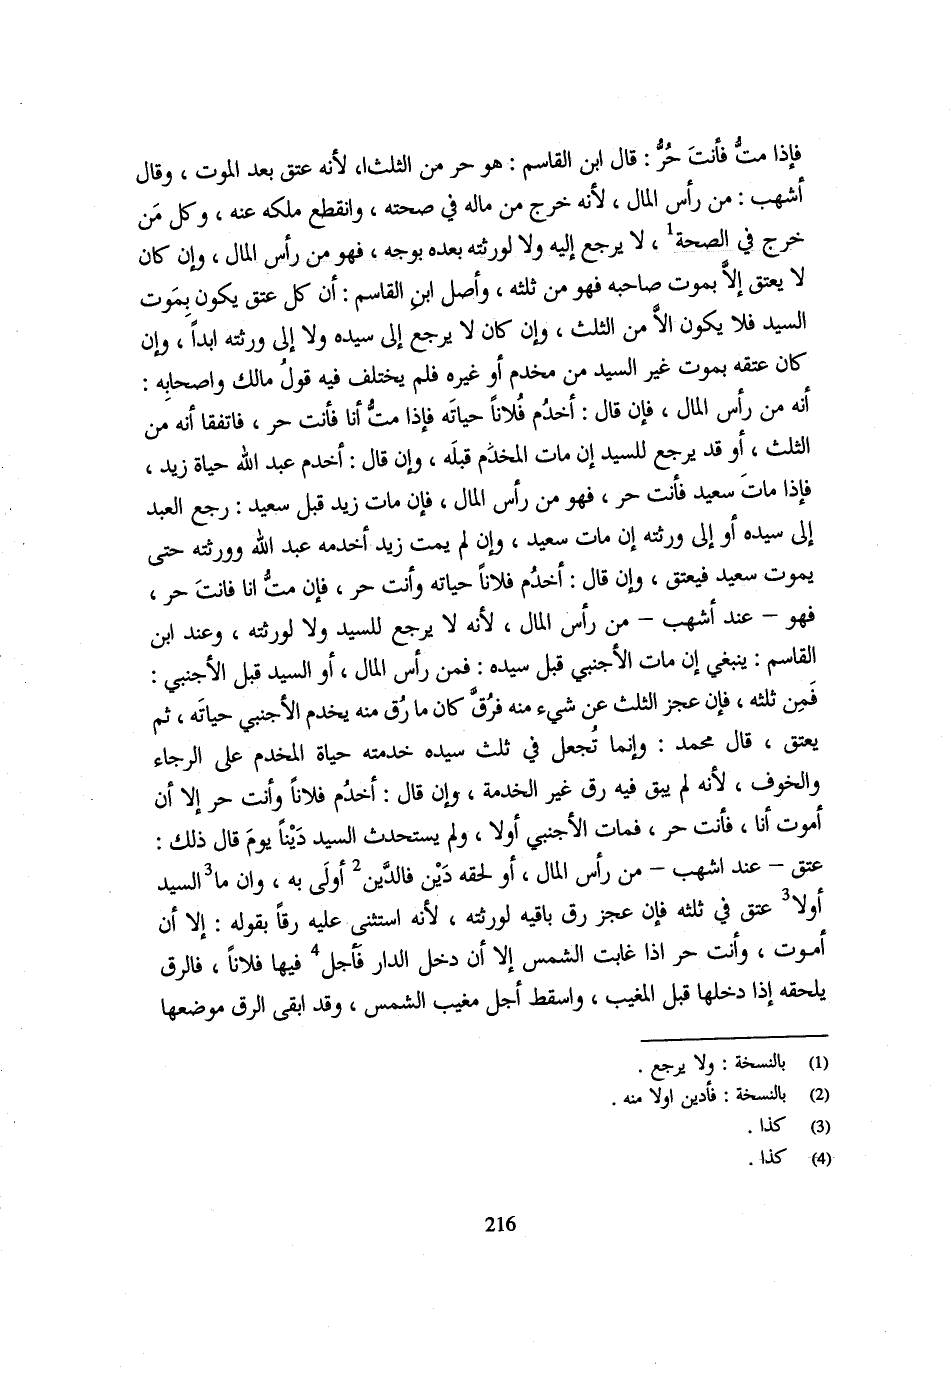 فإذا متُّ فأنتَ حُرُّ : قال ابن القاسم : هو حر من الثلثا، لأنه عتق بعد الموت ، وقال
أشهب : من رأس المال ، لأنه خرج من ماله في صحته ، وانقطع ملكه عنه ، وكل مَن
خرج في الصحة1 ، لا يرجع إليه ولا لورثته بعده بوجه ، فهو من رأس المال ، وإن كان
لا يعتق إلاَّ بموت صاحبه فهو من ثلثه ، وأصل ابنِ القاسم : أن كل عتق يكون بِمَوت
السيد فلا يكون الاَّ من الثلث ، وإن كان لا يرجع إلى سيده ولا إلى ورثته ابداً ، وإن
كان عتقه بموت غير السيد من مخدم أو غيره فلم يختلف فيه قولُ مالك واصحابِه :
أنه من رأس المال ، فإن قال : أخدُم فُلاناً حياتَه فإذا متُّ أنا فأنت حر ، فاتفقا أنه من
الثلث ، أو قد يرجع للسيد إن مات المخدَم قبلَه ، وإن قال : أخدم عبد الله حياة زيد ،
فإذا ماتَ سعيد فأنت حر ، فهو من رأس المال ، فإن مات زيد قبل سعيد : رجع العبد
إلى سيده أو إلى ورثته إن مات سعيد ، وإن لم يمت زيد أخدمه عبد الله وورثته حتى
يموت سعيد فيعتق ، وإن قال : أخدُم فلاناً حياته وأنت حر ، فإن متُّ انا فانتَ حر ،
فهو – عند أشهب – من رأس المال ، لأنه لا يرجع للسيد ولا لورثته ، وعند ابن
القاسم : ينبغي إن مات الأجنبي قبل سيده : فمن رأس المال ، أو السيد قبل الأجنبي :
فَمِن ثلثه ، فإن عجز الثلث عن شيء منه فرُقَّ كان ما رُق منه يخدم الأجنبي حياتَه ، ثم
يعتق ، قال محمد : وإنما تُجعل في ثلث سيده خدمته حياة المخدم على الرجاء
والخوف ، لأنه لم يبق فيه رق غير الخدمة ، وإن قال : أخدُم فلاناً وأنت حر إلا أن
أموت أنا ، فأنت حر ، فمات الأجنبي أولا ، ولم يستحدث السيد دَيْناً يومَ قال ذلك :
عتق – عند اشهب – من رأس المال ، أو لحقه دَيْن فالدَّين2 أولَى به ، وان ما3 السيد
أولا3 عتق في ثلثه فإن عجز رق باقيه لورثته ، لأنه استثنى عليه رقاً بقوله : إلا أن
أموت ، وأنت حر اذا غابت الشمس إلا أن دخل الدار فآجل4 فيها فلاناً ، فالرق
يلحقه إذا دخلها قبل المغيب ، واسقط أجل مغيب الشمس ، وقد ابقى الرق موضعها
(1) بالنسخة : ولا يرجع .
(2) بالنسخة : فأدين اولا منه .
(3) كذا .
(4) كذا .
216